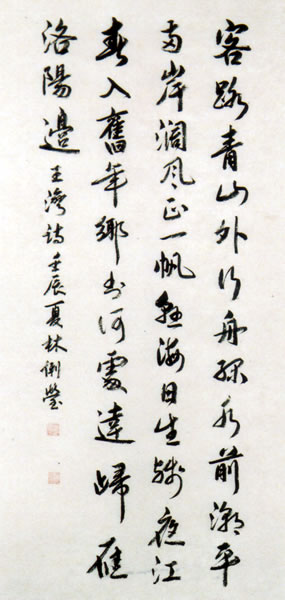 客路青山外行舟綠水前潮平
兩岸闊風正一帆懸海日生殘夜江
春入舊年鄉書何處達歸雁
洛陽邊 王灣詩 壬辰夏林俐瑩